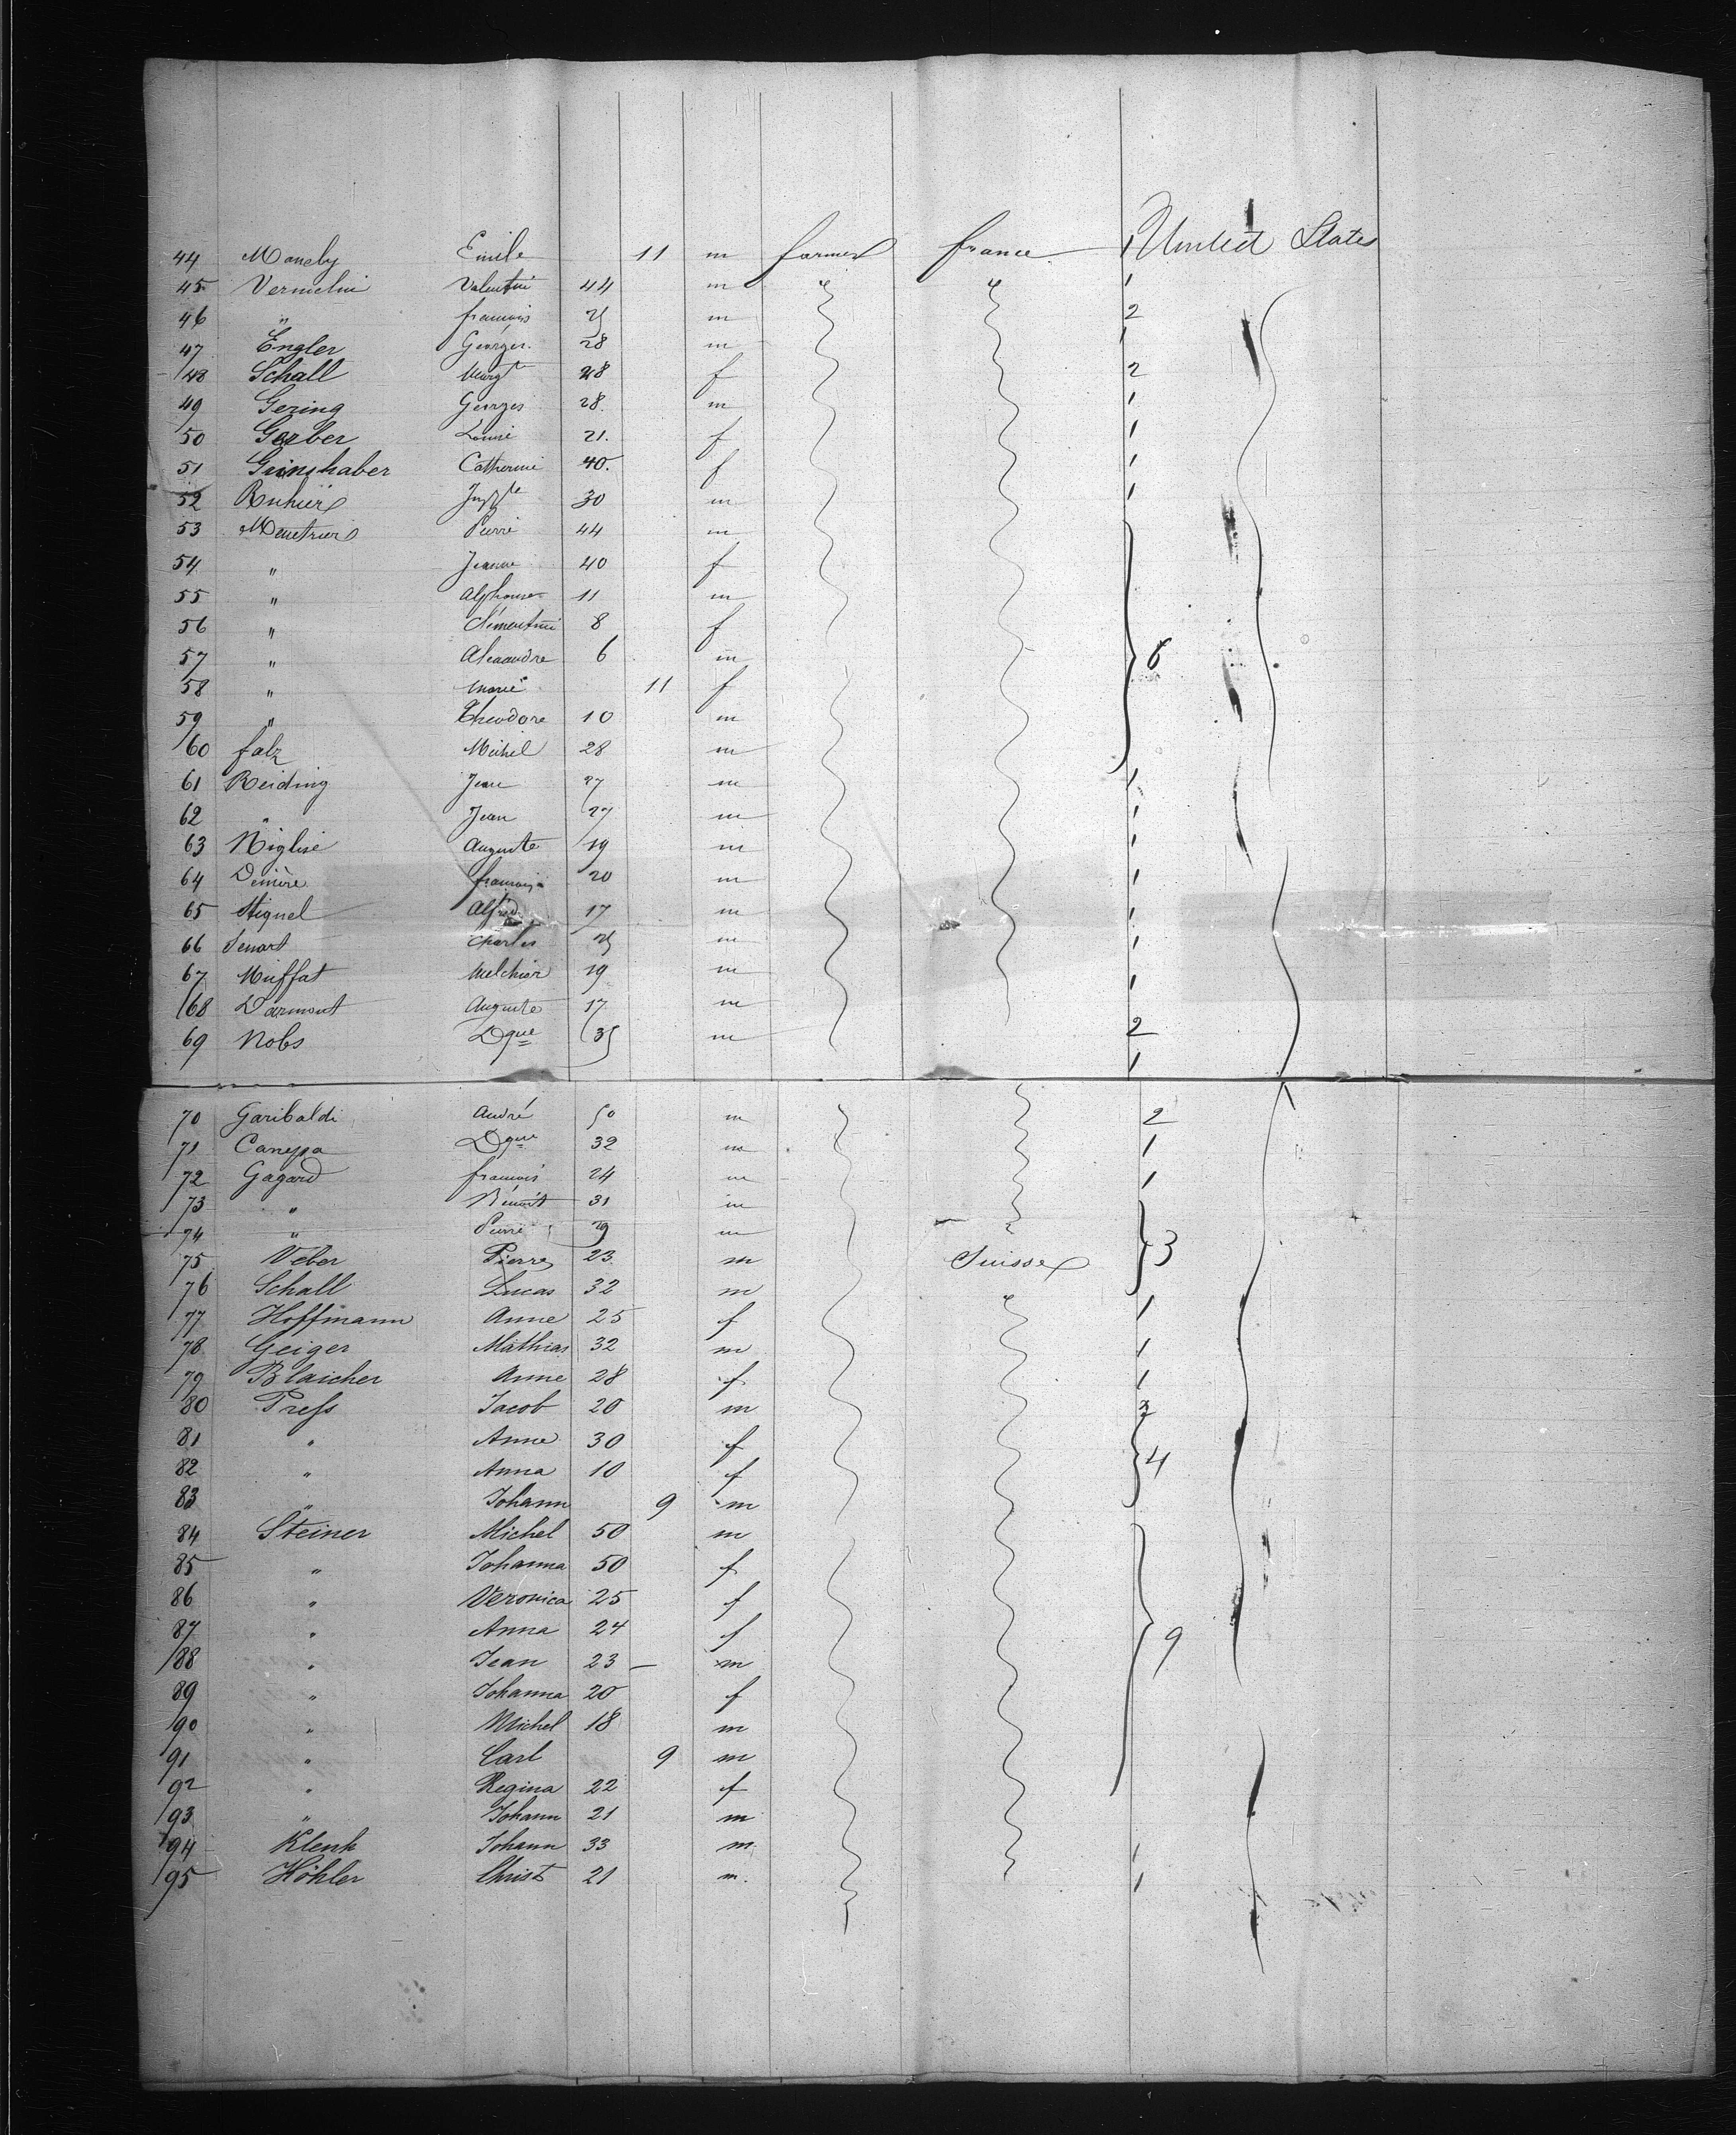 44 Moneby Emile 11 m farmer france 1 United States
45 Vermelin Valentin 44 m 1
46 " francois m 2
47 Engler Georges 28 m 1
48 Schall Margt 28 f 2
49 Gering Georges 28. m 1
50 Gerber Louise 21. f 1
51 Catherine 40. f 1
52 30 m 1
53 Menetrier Pierre 44 m
54 " Jeanne 40 f
55 " Alphonse 11 m
56 " Clémentine 8 f
57 " Alexandre 6 m 6
58 " Marie 11 f
59 " Theodore 10 m
60 falz Michel 28 m
61 Reiding Jean 27 m 1
62 " Jean 27 m 1
63 Niglise Auguste 19 m 1
64 francois 20 m 1
65 Stiquel Alfred 17 m 1
66 Senart Charles m 1
67 Muffat Melchior 19 m 1
68 Darmont Auguste 17 m
69 Nobs Dque 35 m 2
1
70 Garibaldi André 50 m 2
71 Canepa Dque 32 m 1
72 Gagard francois 24 m 1
73 " Bénoit 31 m
74 " Pierre 29 m
75 Veber Pierre 23 m Suisse 3
76 Schall Lucas 32 m
77 Hoffmann Anne 25 f 1
78 Geiger Mathias 32 m 1
79 Blaicher Anne 28 f 1
80 Press Jacob 20 m
81 " Anne 30 f 4
82 " Anna 10 f
83 " Johann 9 m
84 Steiner Michel 50 m
85 " Johanna 50 f
86 " Veronica 25 f
87 " Anna 24 f 9
88 " Jean 23 m
89 " Johanna 20 f
90 " Michel 18 m
91 " Carl 9 m
92 " Regina 22 f
93 " Johann 21 m
94 Klenk Johann 33 m 1
95 Höhler Christ 21 m. 1